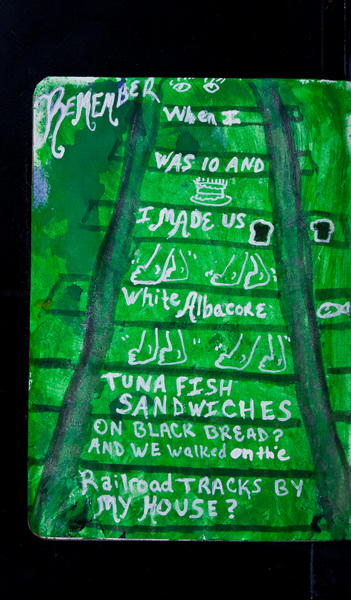 REMEMBER
When I
WAS 10 AND
I MADE US
White Albacore
TUNA FISH
SANDWICHES
ON BLACK BREAD?
AND WE WALKED on the
Railroad TRACKS BY
MY HOUSE?